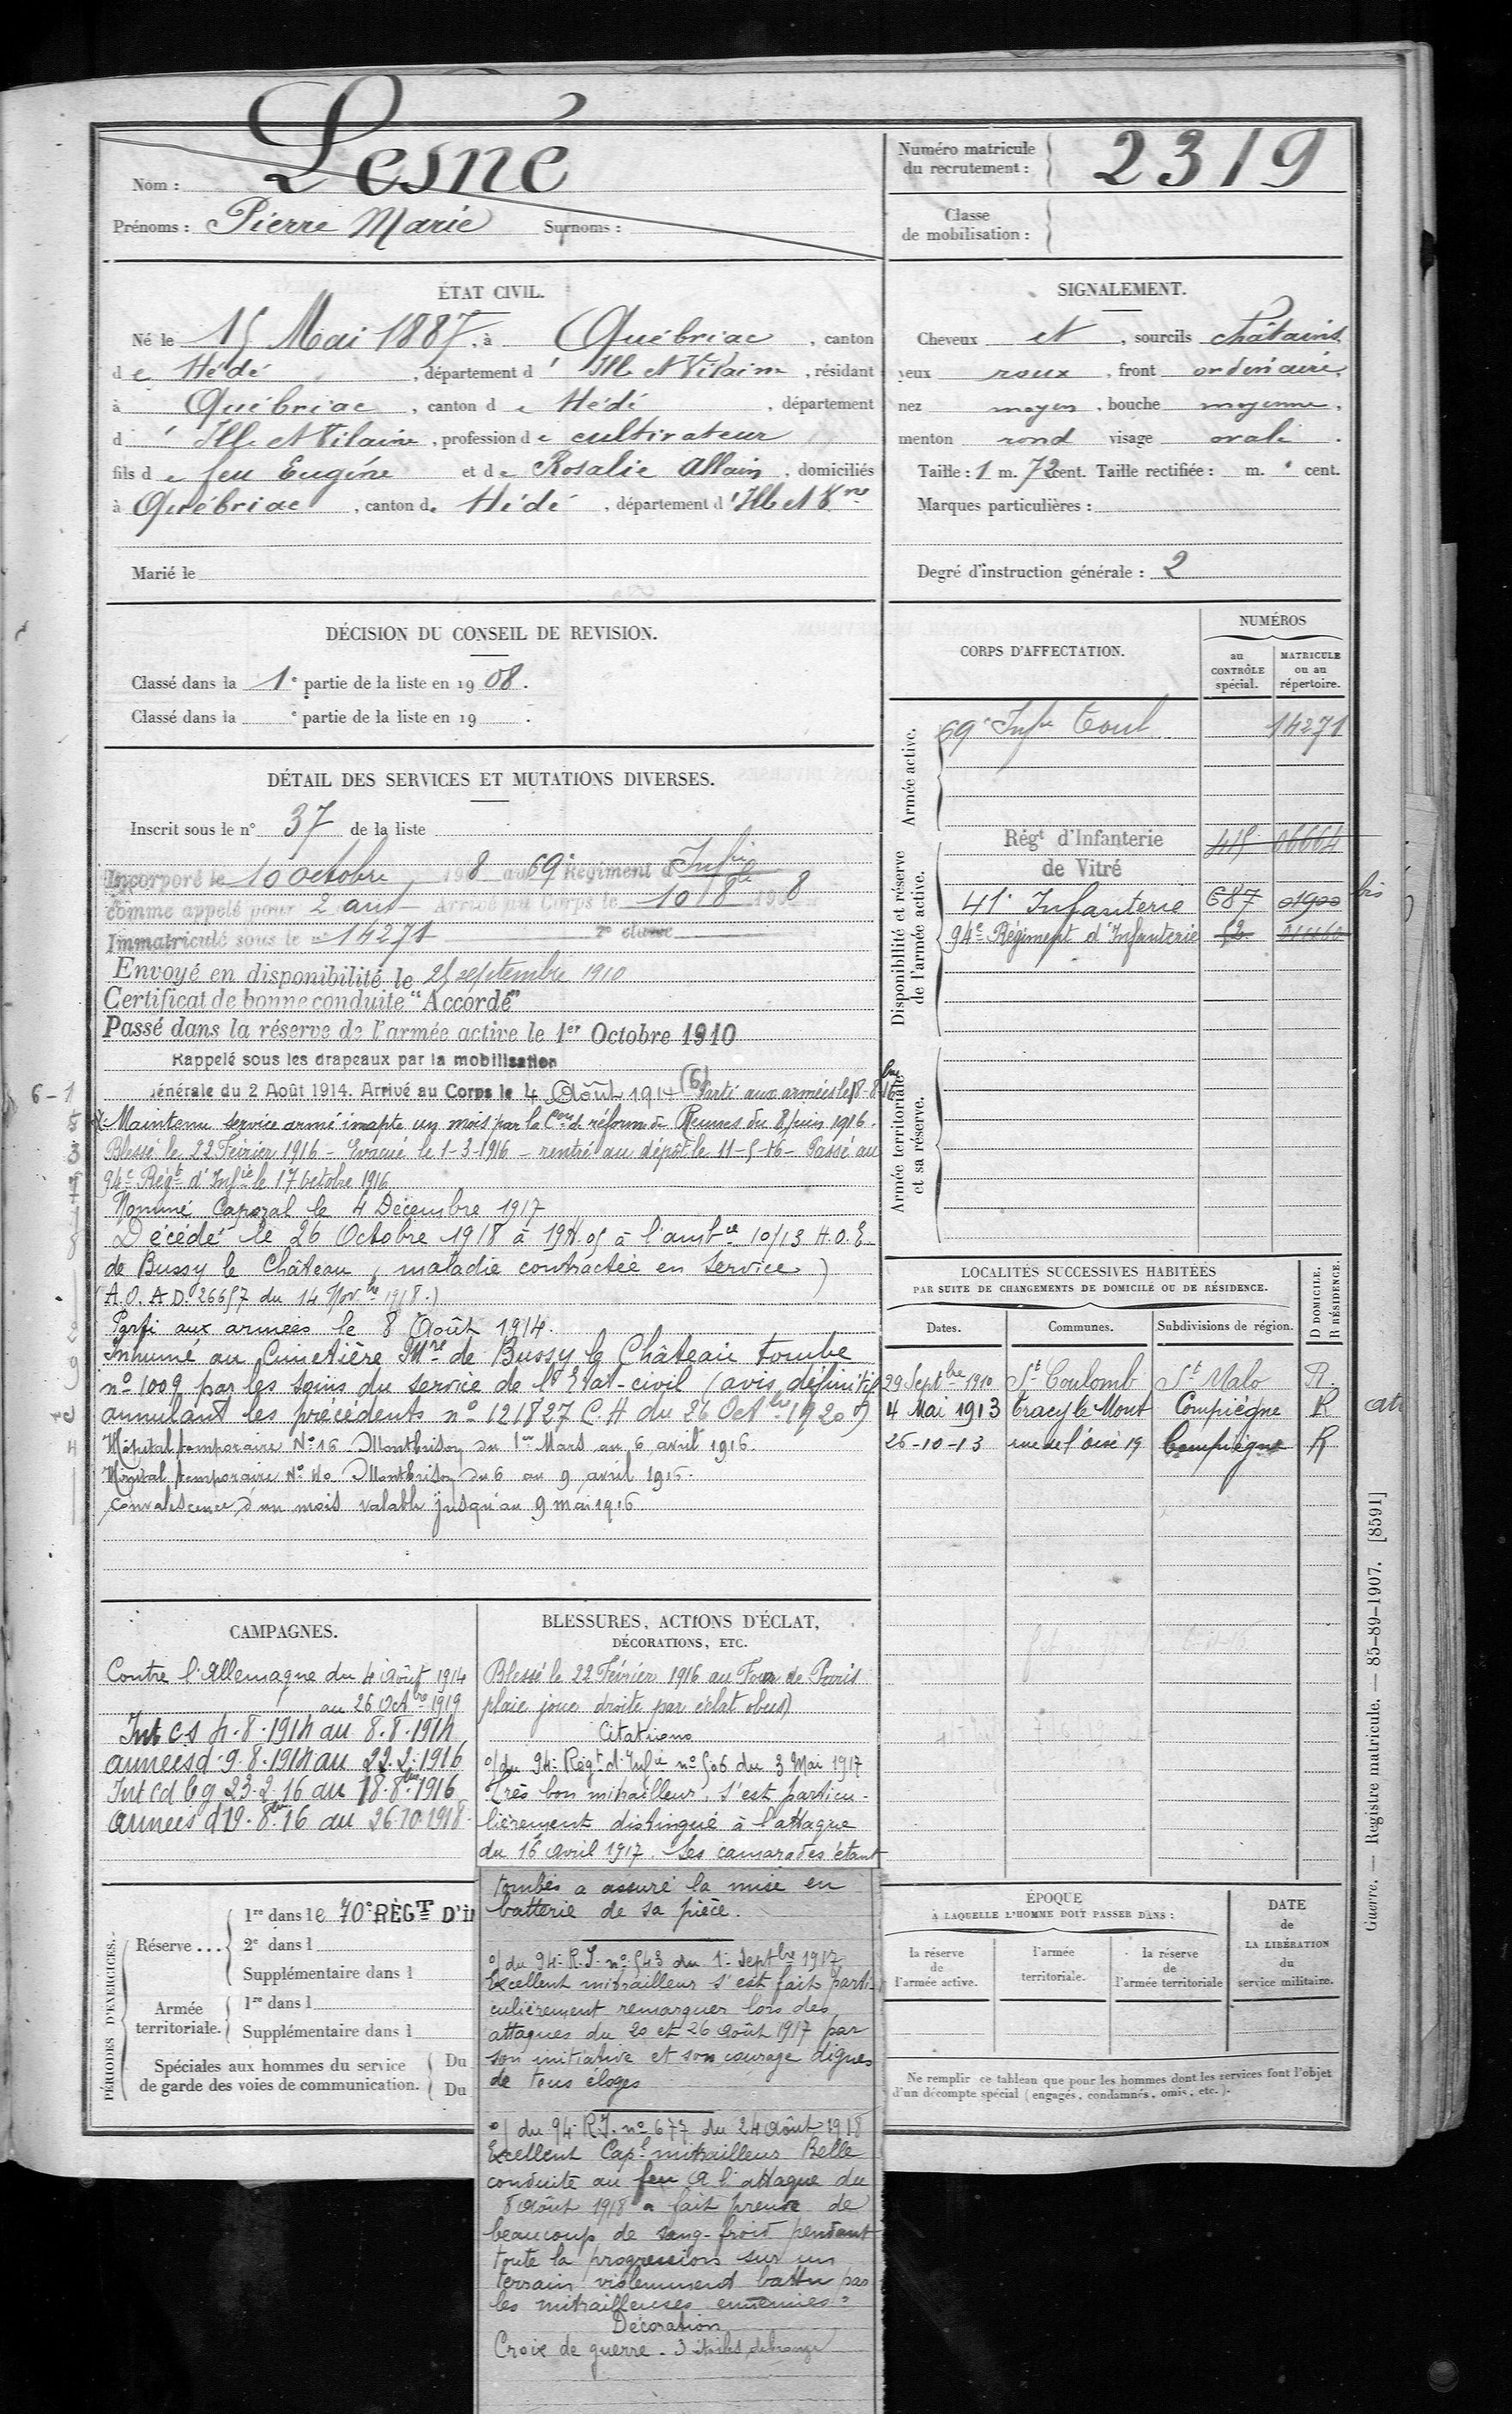 Nom : Lesné
Prénoms : Pierre Marie Surnoms :
Numéro matricule
du recrutement : 2319
Classe
de mobilisation :
ÉTAT CIVIL.
Né le 15 Mai 1887, à Québriac, canton
de Hédé, département d'Ille et Vilaine, résidant
à Québriac, canton de Hédé, département
d'Ille et Vilaine, profession de cultivateur
fils de feu Eugène et de Rosalie Allain, domiciliés
à Québriac, canton de Hédé, département d'Ille et Vne
Marié le
SIGNALEMENT.
Cheveux et, sourcils châtains
yeux roux, front ordinaire,
nez moyen, bouche moyenne,
menton rond visage ovale.
Taille : 1 m. 72 cent. Taille rectifiée : m. cent.
Marques particulières :
Degré d'instruction générale : 2
DÉCISION DU CONSEIL DE REVISION.
Classé dans la 1e partie de la liste en 1908.
Classé dans la e partie de la liste en 19 .
DÉTAIL DES SERVICES ET MUTATIONS DIVERSES.
Inscrit sous le n° 37 de la liste
Incorporé le 10 octobre 1908 au 69e Régiment d'Infie
comme appelé pour 2 ans Arrivé au Corps le 10 8bre 1908
Immatriculé sous le n° 14271 2e classe
Envoyé en disponibilité le 25 septembre 1910
Certificat de bonne conduite "Accordé"
Passé dans la réserve de l'armée active le 1er Octobre 1910
Rappelé sous les drapeaux par la mobilisation
générale du 2 Août 1914. Arrivé au Corps le 4 Août 1914 (6) Parti aux armées le 18-8bre 16
Maintenu service armé inapte un mois par la Con de réforme de Rennes du 8 juin 1916.
Blessé le 22 Février 1916 – Evacué le 1-3-1916 – rentré au dépôt le 11-5-16 – Passé au
94e Régt d'Infie le 17 octobre 1916
Nommé Caporal le 4 Décembre 1917
Décédé le 26 Octobre 1918 à 19H.05 à l'ambce 10/13 H.O.E
de Bussy le Château (maladie contractée en service)
(A.O. AD. 26657 du 14 Novbre 1918.)
Parti aux armées le 8 Août 1914.
Inhumé au Cimetière Mre de Bussy le Château tombe
n° 1009 par les soins du service de l'Etat-civil (avis définitif
annulant les précédents n° 121827 C.H du 26 Octbre 1920)
Hôpital temporaire N° 16 Montbrison du 1er Mars au 6 avril 1916.
Hôpital temporaire N° 40 Montbrison du 6 au 9 avril 1916.
Convalescence d'un mois valable jusqu'au 9 mai 1916
CORPS D'AFFECTATION.
NUMÉROS
au
CONTRÔLE
spécial.
MATRICULE
ou au
répertoire.
Armée active.
69e Infie Toul 14271
Disponibilité et réserve
de l'armée active.
Régt d'Infanterie 415 06664
de Vitré
41e Infanterie 687 01900 bis
94e Régiment d'Infanterie 52
Armée territoriale
et sa réserve.
LOCALITÉS SUCCESSIVES HABITÉES
PAR SUITE DE CHANGEMENTS DE DOMICILE OU DE RÉSIDENCE.
D DOMICILE.
R RÉSIDENCE.
Dates. Communes. Subdivisions de région.
29 Septbre 1910 St Coulomb St Malo R.
4 Mai 1913 Tracy le Mont Compiègne R
26-10-13 rue de l'Oise 19 Compiègne R
CAMPAGNES.
Contre l'Allemagne du 4 Août 1914
au 26 Octbre 1919
Int cs 4.8.1914 au 8.8.1914
armées d 9.8.1914 au 22.2.1916
Int cd bg 23.2.16 au 18.8bre 1916
armées d 19.8bre 16 au 26.10.1918
BLESSURES, ACTIONS D'ÉCLAT,
DÉCORATIONS, ETC.
Blessé le 22 Février 1916 au Four de Paris
plaie joue droite par éclat obus)
Citations
o/ du 94e Régt d'Infie n° 506 du 3 Mai 1917
Très bon mitrailleur, s'est particu-
lièrement distingué à l'attaque
du 16 Avril 1917. Ses camarades étant
tombés a assuré la mise en
batterie de sa pièce.
o/ du 94e R.I. n° 543 du 1er Septbre 1917
Excellent mitrailleur s'est fait parti-
culièrement remarquer lors des
attaques du 20 et 26 Août 1917 par
son initiative et son courage dignes
de tous éloges
o/ du 94e R.I. n° 677 du 24 Août 1918
Excellent Capl mitrailleur Belle
conduite au feu A l'attaque du
8 Août 1918 a fait preuve de
beaucoup de sang-froid pendant
toute la progression sur un
terrain violemment battu par
les mitrailleuses ennemies"
Décoration
Croix de guerre. 3 étoiles de bronze
PÉRIODES D'EXERCICES.
Réserve ... 1re dans le 70e RÉGT D'I
2e dans l
Supplémentaire dans l
Armée
territoriale. 1re dans l
Supplémentaire dans l
Spéciales aux hommes du service
de garde des voies de communication. Du
Du
ÉPOQUE
À LAQUELLE L'HOMME DOIT PASSER DANS :
la réserve
de
l'armée active.
l'armée
territoriale.
la réserve
de
l'armée territoriale
DATE
de
LA LIBÉRATION
du
service militaire.
Ne remplir ce tableau que pour les hommes dont les services font l'objet
d'un décompte spécial (engagés, condamnés, omis, etc.).
Guerre. — Registre matricule. — 85-89-1907. [8591]